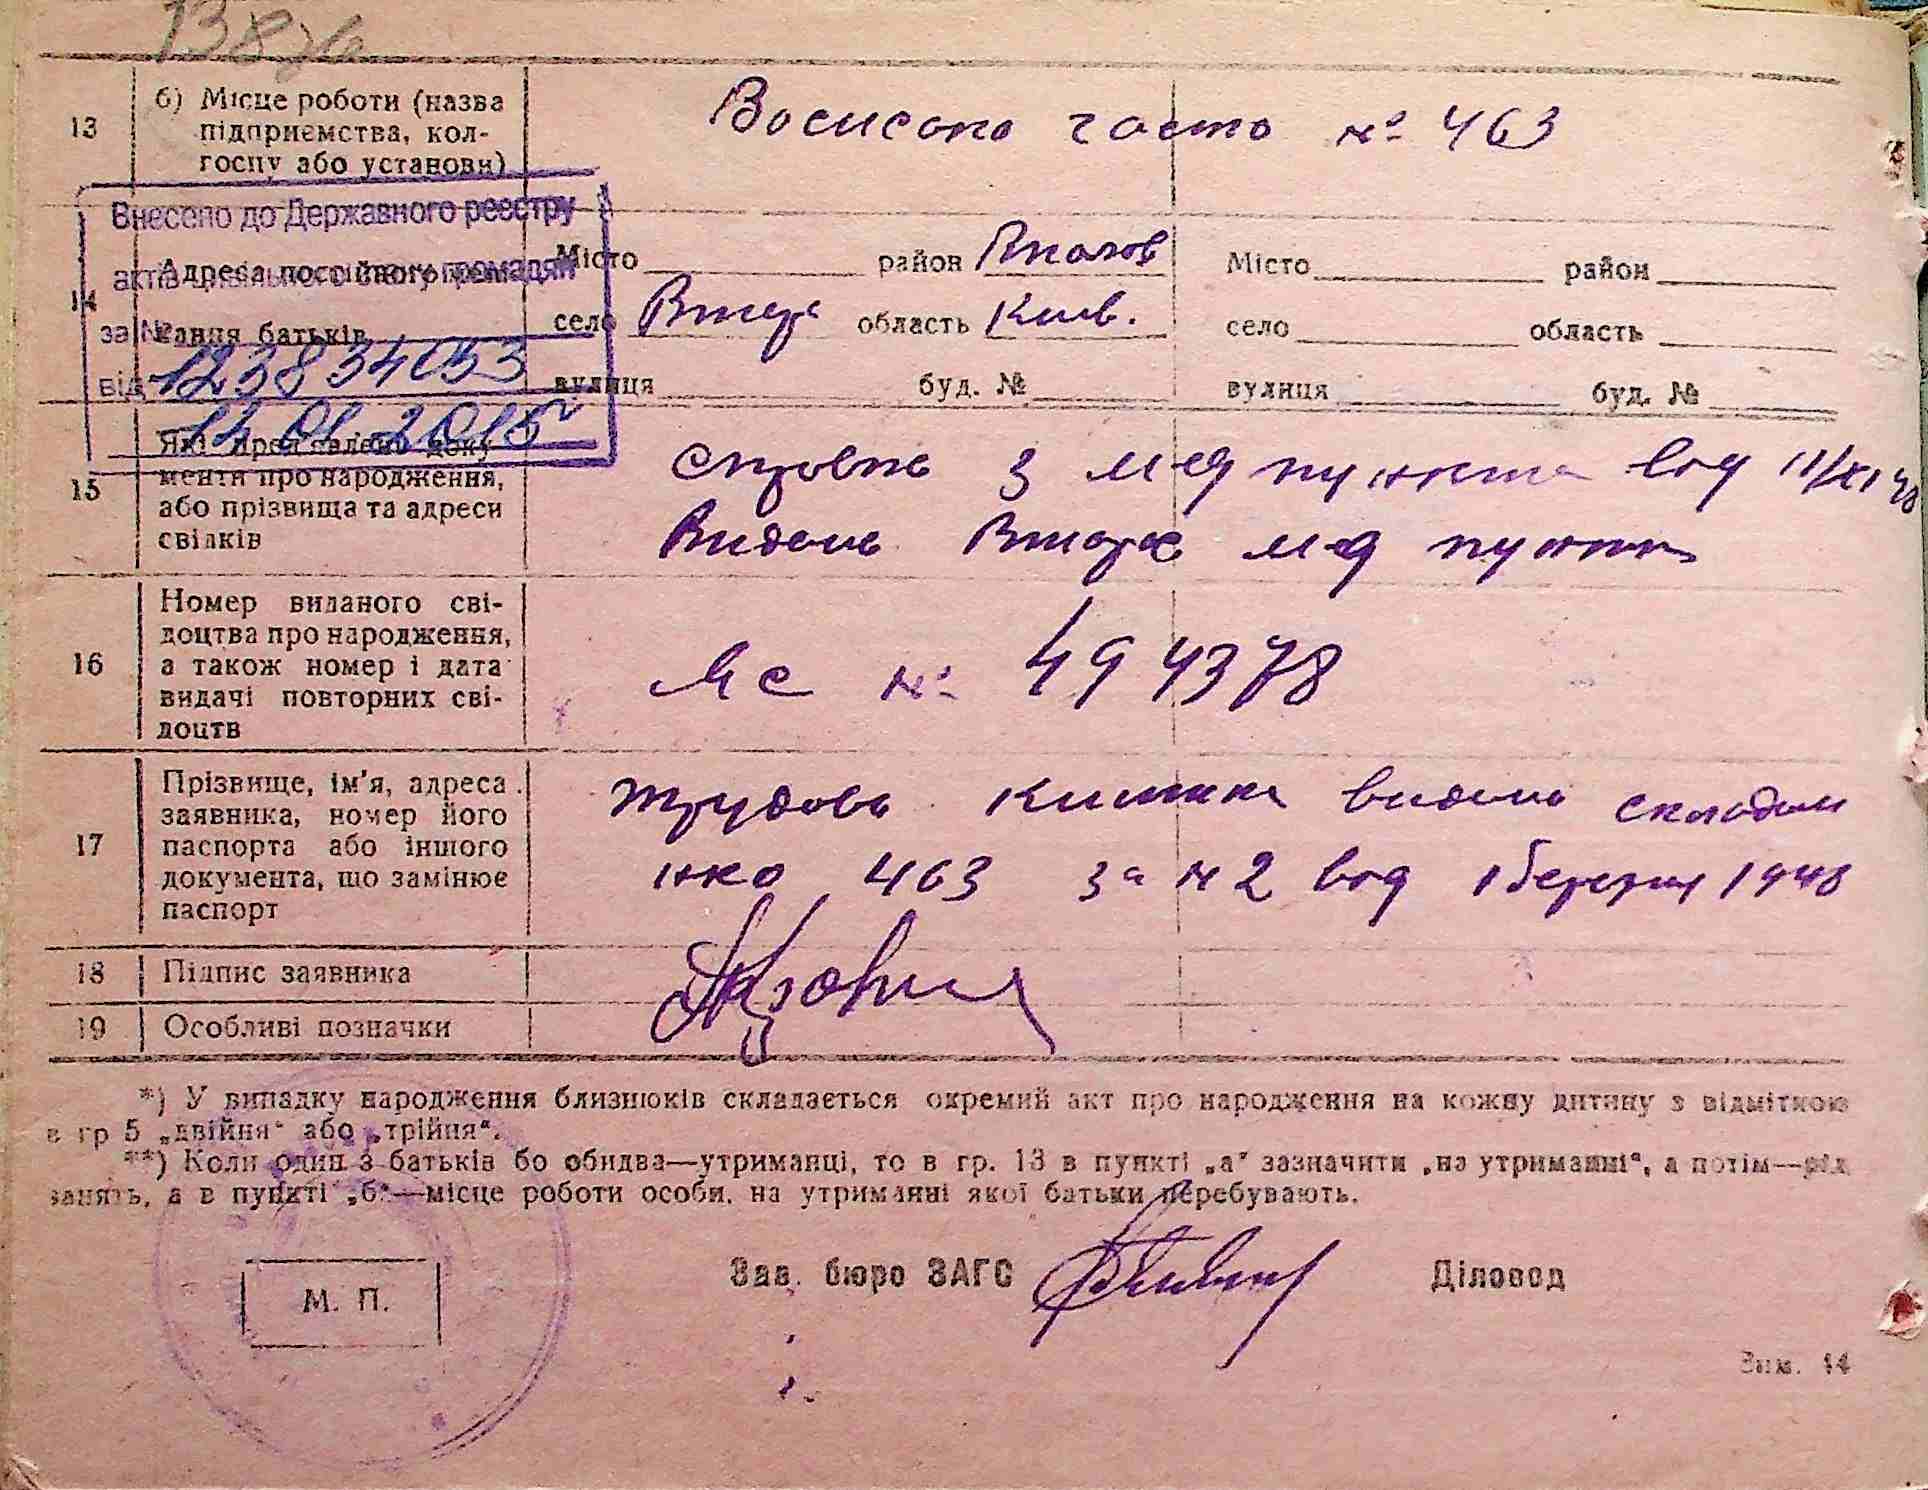 13
б) Місце роботи (назва
підприємства, кол-
госпу або установи)
часто № 463
Внесено до Державного реєстру
актів цивільного стану громадян
за №
123834053
від
12 01 2015
14
Адреса постійного
вання батьків
Місто район
село область Київ.
вулиця буд. №
Місто район
село область
вулиця буд. №
15
Які пред'явлено доку
менти про народження,
або прізвища та адреси
свідків
з мед пункта від 11/XI 48
Видана мед пункт
16
Номер виданого сві-
доцтва про народження,
а також номер і дата
видачі повторних сві-
доцтв
№ 494378
17
Прізвище, ім'я, адреса
заявника, номер його
паспорта або іншого
документа, що замінює
паспорт
трудова книжка видана
463 за № 2 від 1 березня 1948
18
Підпис заявника
19
Особливі позначки
*) У випадку народження близнюків складається окремий акт про народження на кожну дитину з відміткою
в гр 5 „двійня" або „трійня".
**) Коли один з батьків бо обидва—утриманці, то в гр. 13 в пункті „а" зазначити „на утриманні", а потім—рід
занять, а в пункті „б"—місце роботи особи, на утриманні якої батьки перебувають.
М. П.
Зав. бюро ЗАГС
Діловод
Зим. 44